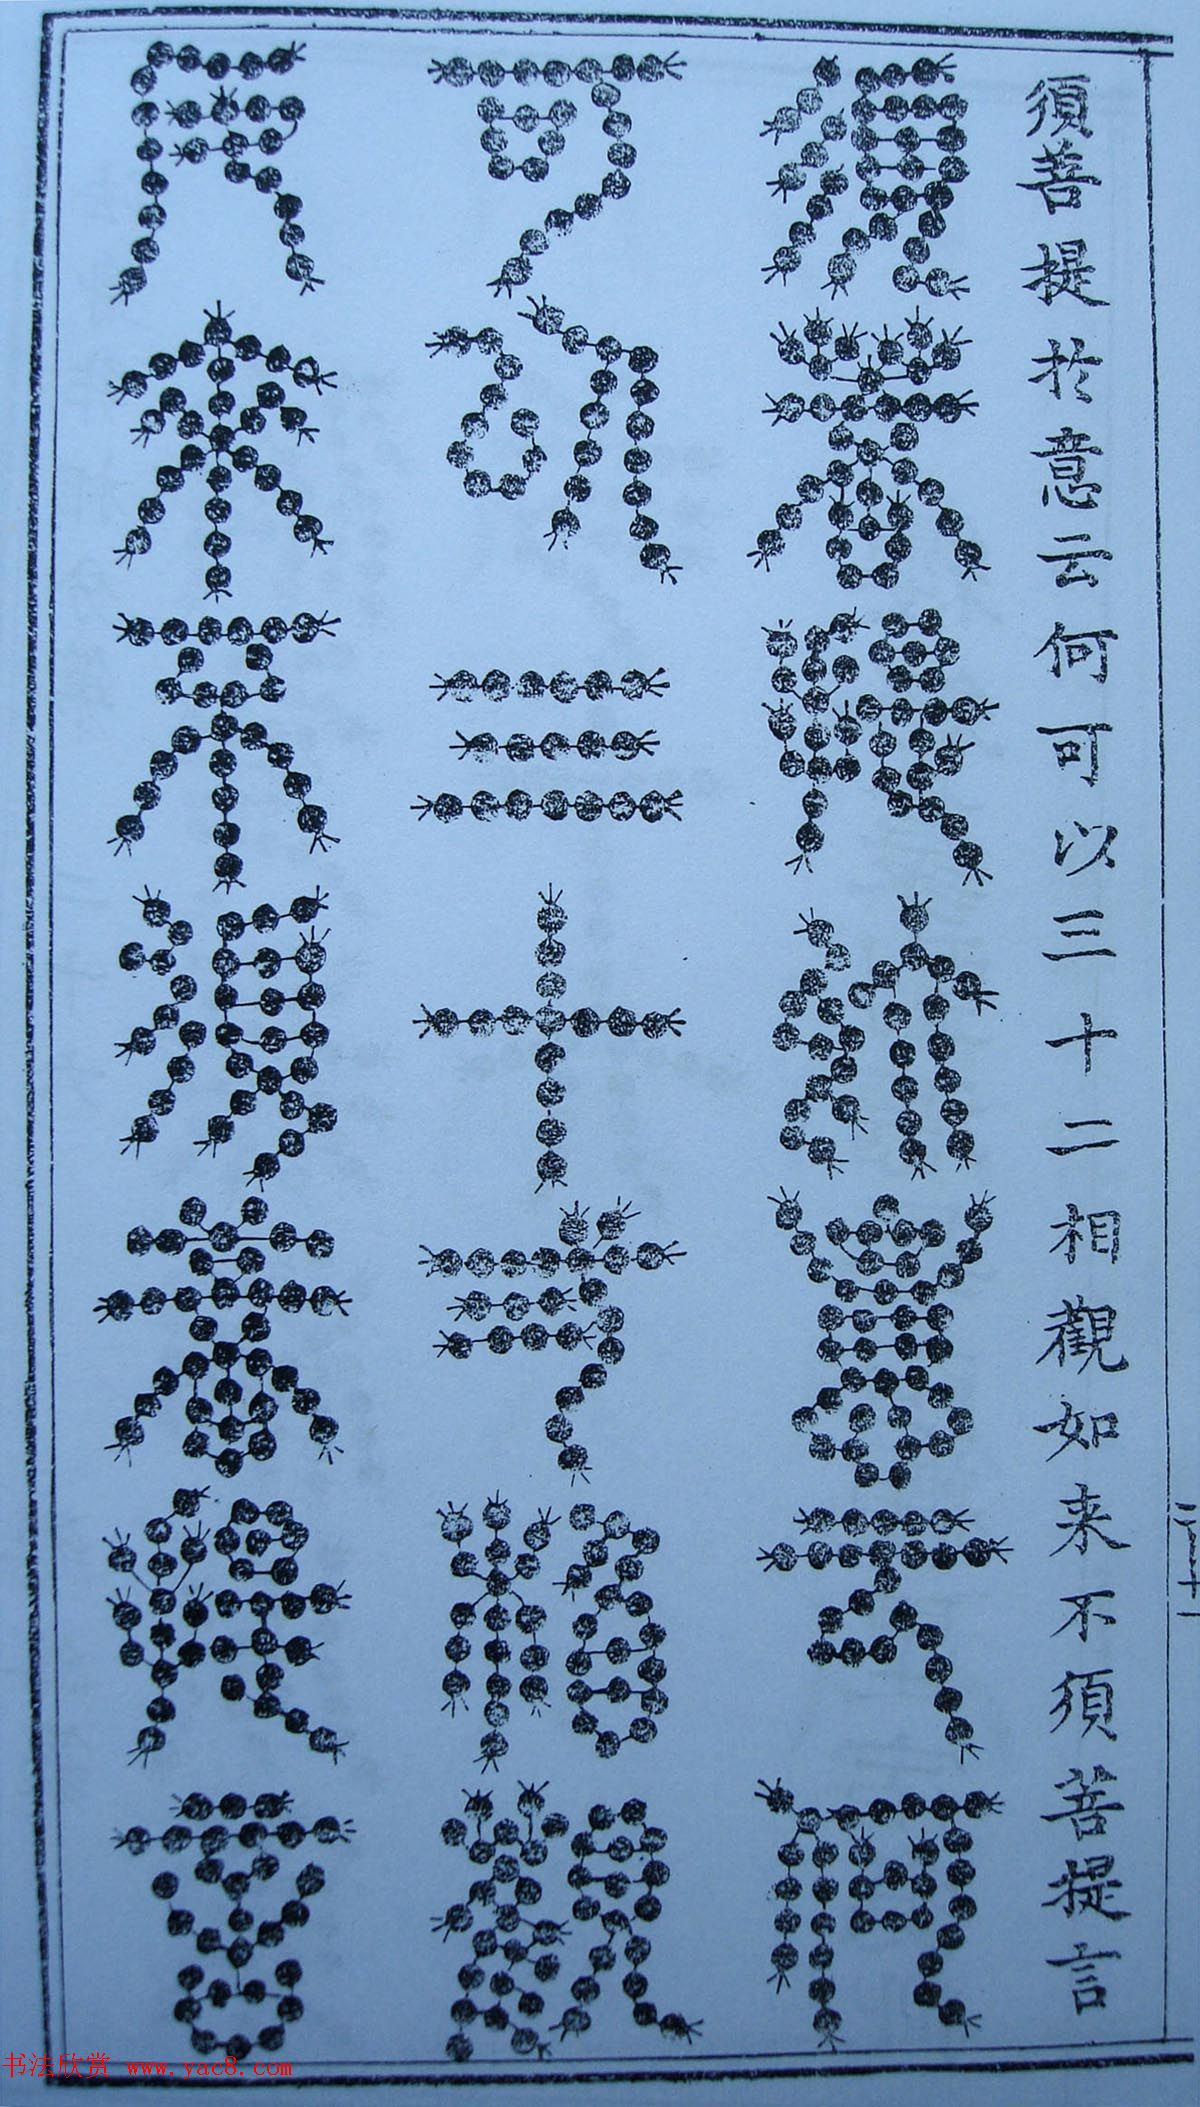 須菩提於意云何可以三十二相觀如来不須菩提言
須菩提於意云何
可以三十二相觀
如来不須菩提言
书法欣赏 www.yac8.com